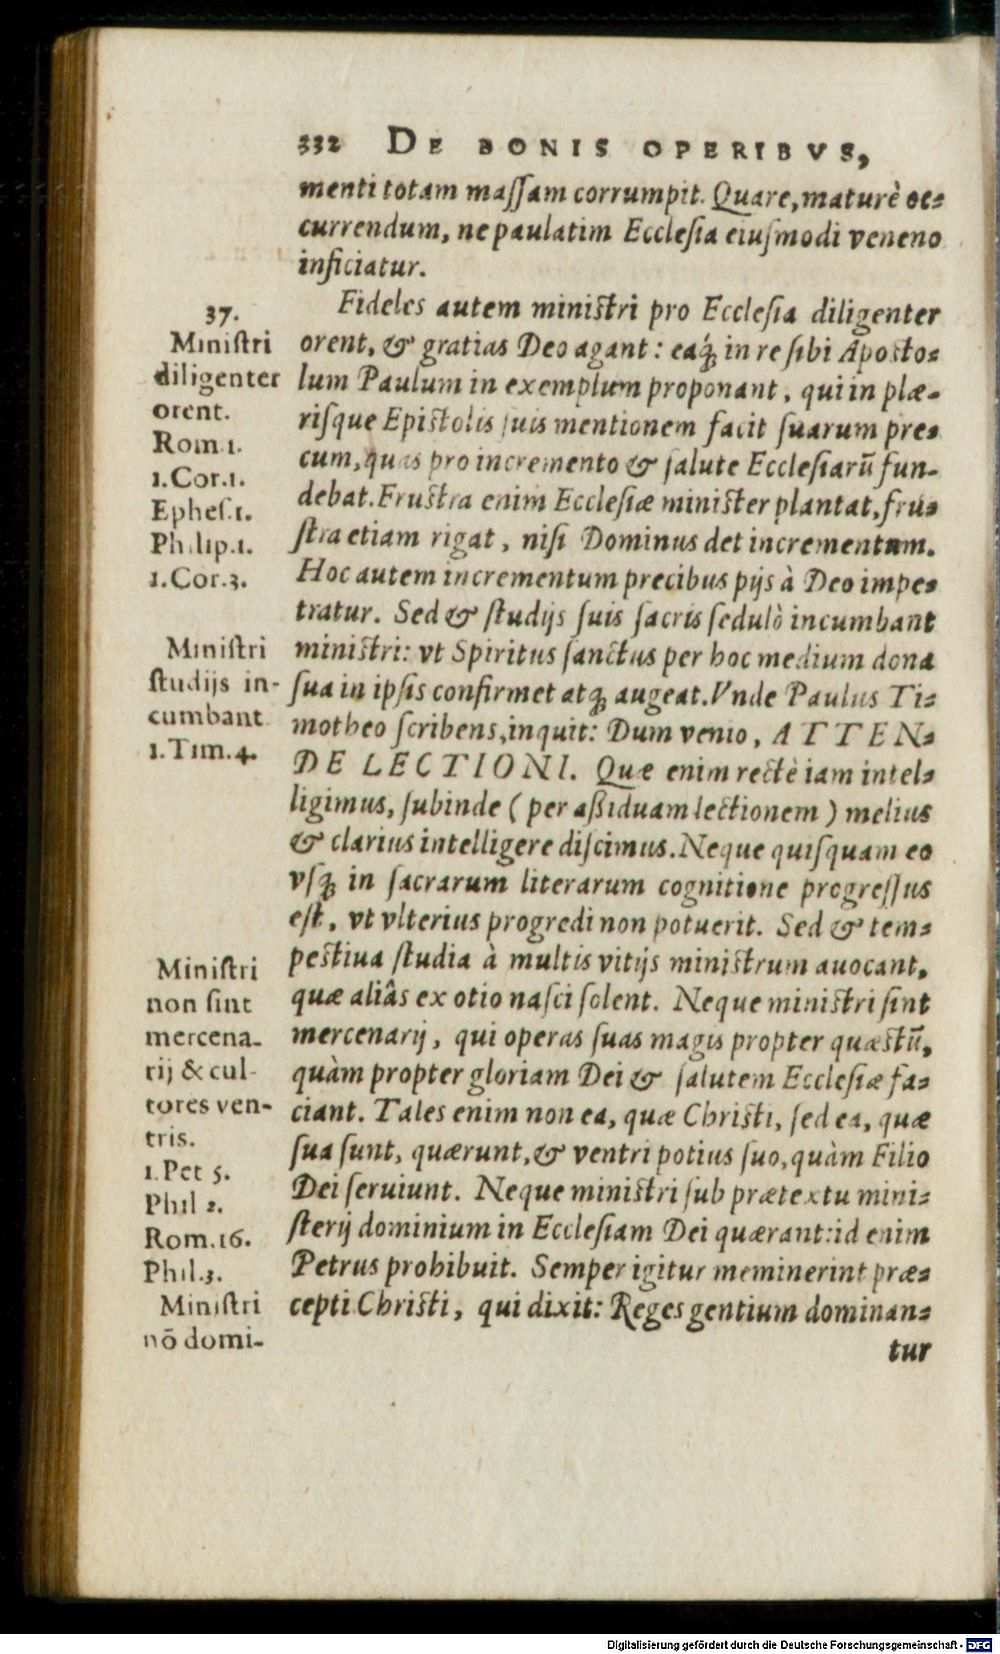 332 DE BONIS OPERIBVS,
menti totam maſſam corrumpit. Quare, maturè oc-
currendum, ne paulatim Eccleſia eiuſmodi veneno
inficiatur.
Fideles autem miniſtri pro Eccleſia diligenter
orent, & gratias Deo agant: eaq́ꝫ in re ſibi Apoſto-
lum Paulum in exemplum proponant, qui in plæ-
riſque Epiſtolis ſuis mentionem facit ſuarum pre-
cum, quas pro incremento & ſalute Eccleſiarũ fun-
debat. Fruſtra enim Eccleſiæ miniſter plantat, fru-
ſtra etiam rigat, niſi Dominus det incrementum.
Hoc autem incrementum precibus pijs à Deo impe-
tratur. Sed & ſtudijs ſuis ſacris ſedulò incumbant
miniſtri: vt Spiritus ſanctus per hoc medium dona
ſua in ipſis confirmet atqꝫ augeat. Vnde Paulus Ti-
motheo ſcribens, inquit: Dum venio, ATTEN-
DE LECTIONI. Quæ enim rectè iam intel-
ligimus, ſubinde (per aßiduam lectionem) melius
& clarius intelligere diſcimus. Neque quiſquam eo
vſqꝫ in ſacrarum literarum cognitione progreſſus
eſt, vt vlterius progredi non potuerit. Sed & tem-
peſtiua ſtudia à multis vitijs miniſtrum auocant,
quæ aliâs ex otio naſci ſolent. Neque miniſtri ſint
mercenarij, qui operas ſuas magis propter quæſtũ,
quàm propter gloriam Dei & ſalutem Eccleſiæ fa-
ciant. Tales enim non ea, quæ Chriſti, ſed ea, quæ
ſua ſunt, quærunt, & ventri potius ſuo, quàm Filio
Dei ſeruiunt. Neque miniſtri ſub prætextu mini-
ſterij dominium in Eccleſiam Dei quærant: id enim
Petrus prohibuit. Semper igitur meminerint præ-
cepti Chriſti, qui dixit: Reges gentium dominan-
tur
37.
Miniſtri
diligenter
orent.
Rom.1.
1.Cor.1.
Epheſ.1.
Philip.1.
1.Cor.3.
Miniſtri
ſtudijs in-
cumbant
1.Tim.4.
Miniſtri
non ſint
mercena-
rij & cul-
tores ven-
tris.
1.Pet 5.
Phil 2.
Rom.16.
Phil.3.
Miniſtri
nō domi-
Digitalisierung gefördert durch die Deutsche Forschungsgemeinschaft - DFG